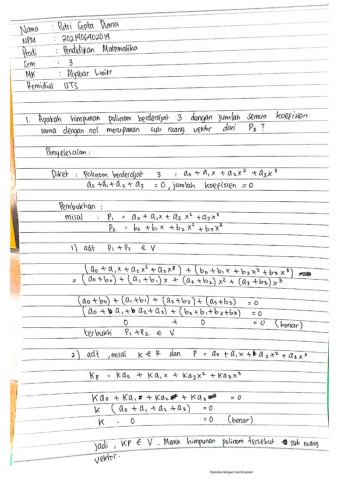 Nama : Putri Cepta Diana
NPM : 2021406402014
Prodi : Pendidikan Matematika
Sem : 3
MK : Aljabar Linier
Remidial UTS
1. Apakah himpunan polinom berderajat 3 dengan jumlah semua koefisien
sama dengan nol merupakan sub ruang vektor dari P₃ ?
Penyelesaian :
Diket : Polinom berderajat 3 = a₀ + a₁x + a₂x² + a₃x³
a₀ + a₁ + a₂ + a₃ = 0, jumlah koefisien = 0
Pembuktian :
misal : P₁ = a₀ + a₁x + a₂x² + a₃x³
P₂ = b₀ + b₁x + b₂x² + b₃x³
1) adt P₁ + P₂ ∈ V
(a₀ + a₁x + a₂x² + a₃x³) + (b₀ + b₁x + b₂x² + b₃x³)
= (a₀ + b₀) + (a₁ + b₁)x + (a₂ + b₂)x² + (a₃ + b₃)x³
(a₀ + b₀) + (a₁ + b₁) + (a₂ + b₂) + (a₃ + b₃) = 0
(a₀ + a₁ + a₂ + a₃) + (b₀ + b₁ + b₂ + b₃) = 0
0 + 0 = 0 (benar)
terbukti P₁ + P₂ ∈ V
2) adt , misal k ∈ R dan P = a₀ + a₁x + a₂x² + a₃x³
Kp = Ka₀ + Ka₁x + Ka₂x² + Ka₃x³
Ka₀ + Ka₁ + Ka₂ + Ka₃ = 0
K (a₀ + a₁ + a₂ + a₃) = 0
K . 0 = 0 (benar)
jadi, KP ∈ V . Maka himpunan polinom tersebut sub ruang
vektor.
Dipindai dengan CamScanner